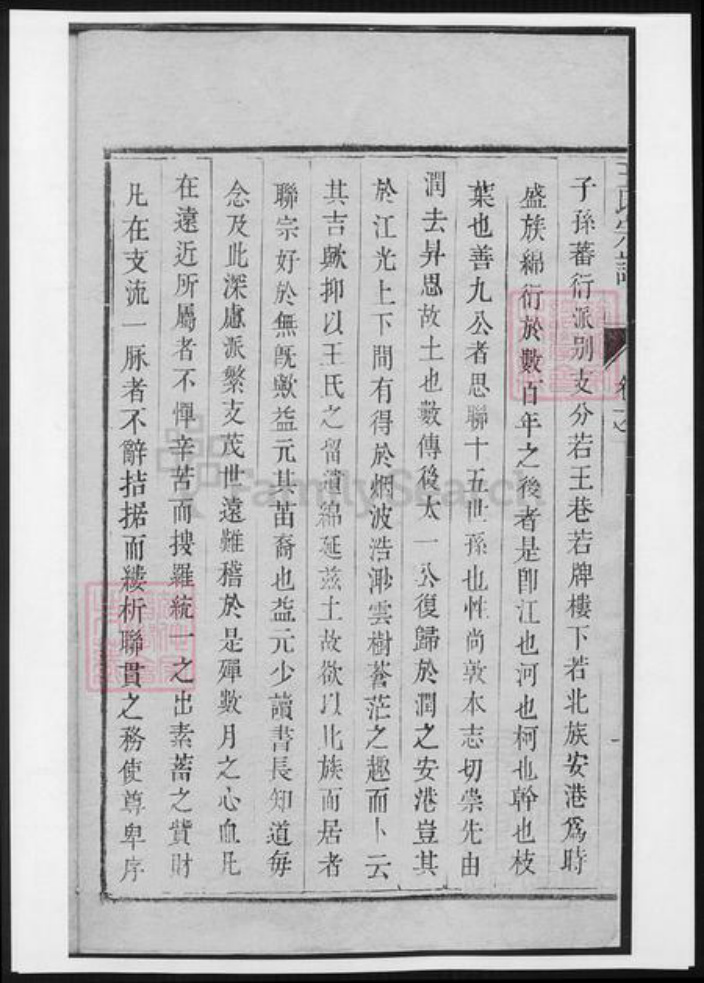 王氏宗譜
子孫蕃衍派别支分若王巷若牌樓下若北族安港爲時
盛族綿衍於數百年之後者是卽江也河也柯也幹也枝
葉也善九公者思聯十五世孫也性尚敦本志切崇先由
潤去昇思故土也數傳後太一公復歸於潤之安港豈其
於江光上下間有得於烟波浩渺雲樹蒼茫之趣而卜云
其吉歟抑以王氏之留澬綿延兹土故欲以北族而居者
聯宗好於無旣歟益元其苗裔也益元少讀書長知道每
念及此深慮派繁支茂世遠難稽於是殫數月之心血凡
在遠近所屬者不憚辛苦而搜羅統一之出素蓄之貲財
凡在支流一脉者不辭拮据而縷析聯貫之務使尊卑序
FamilySearch